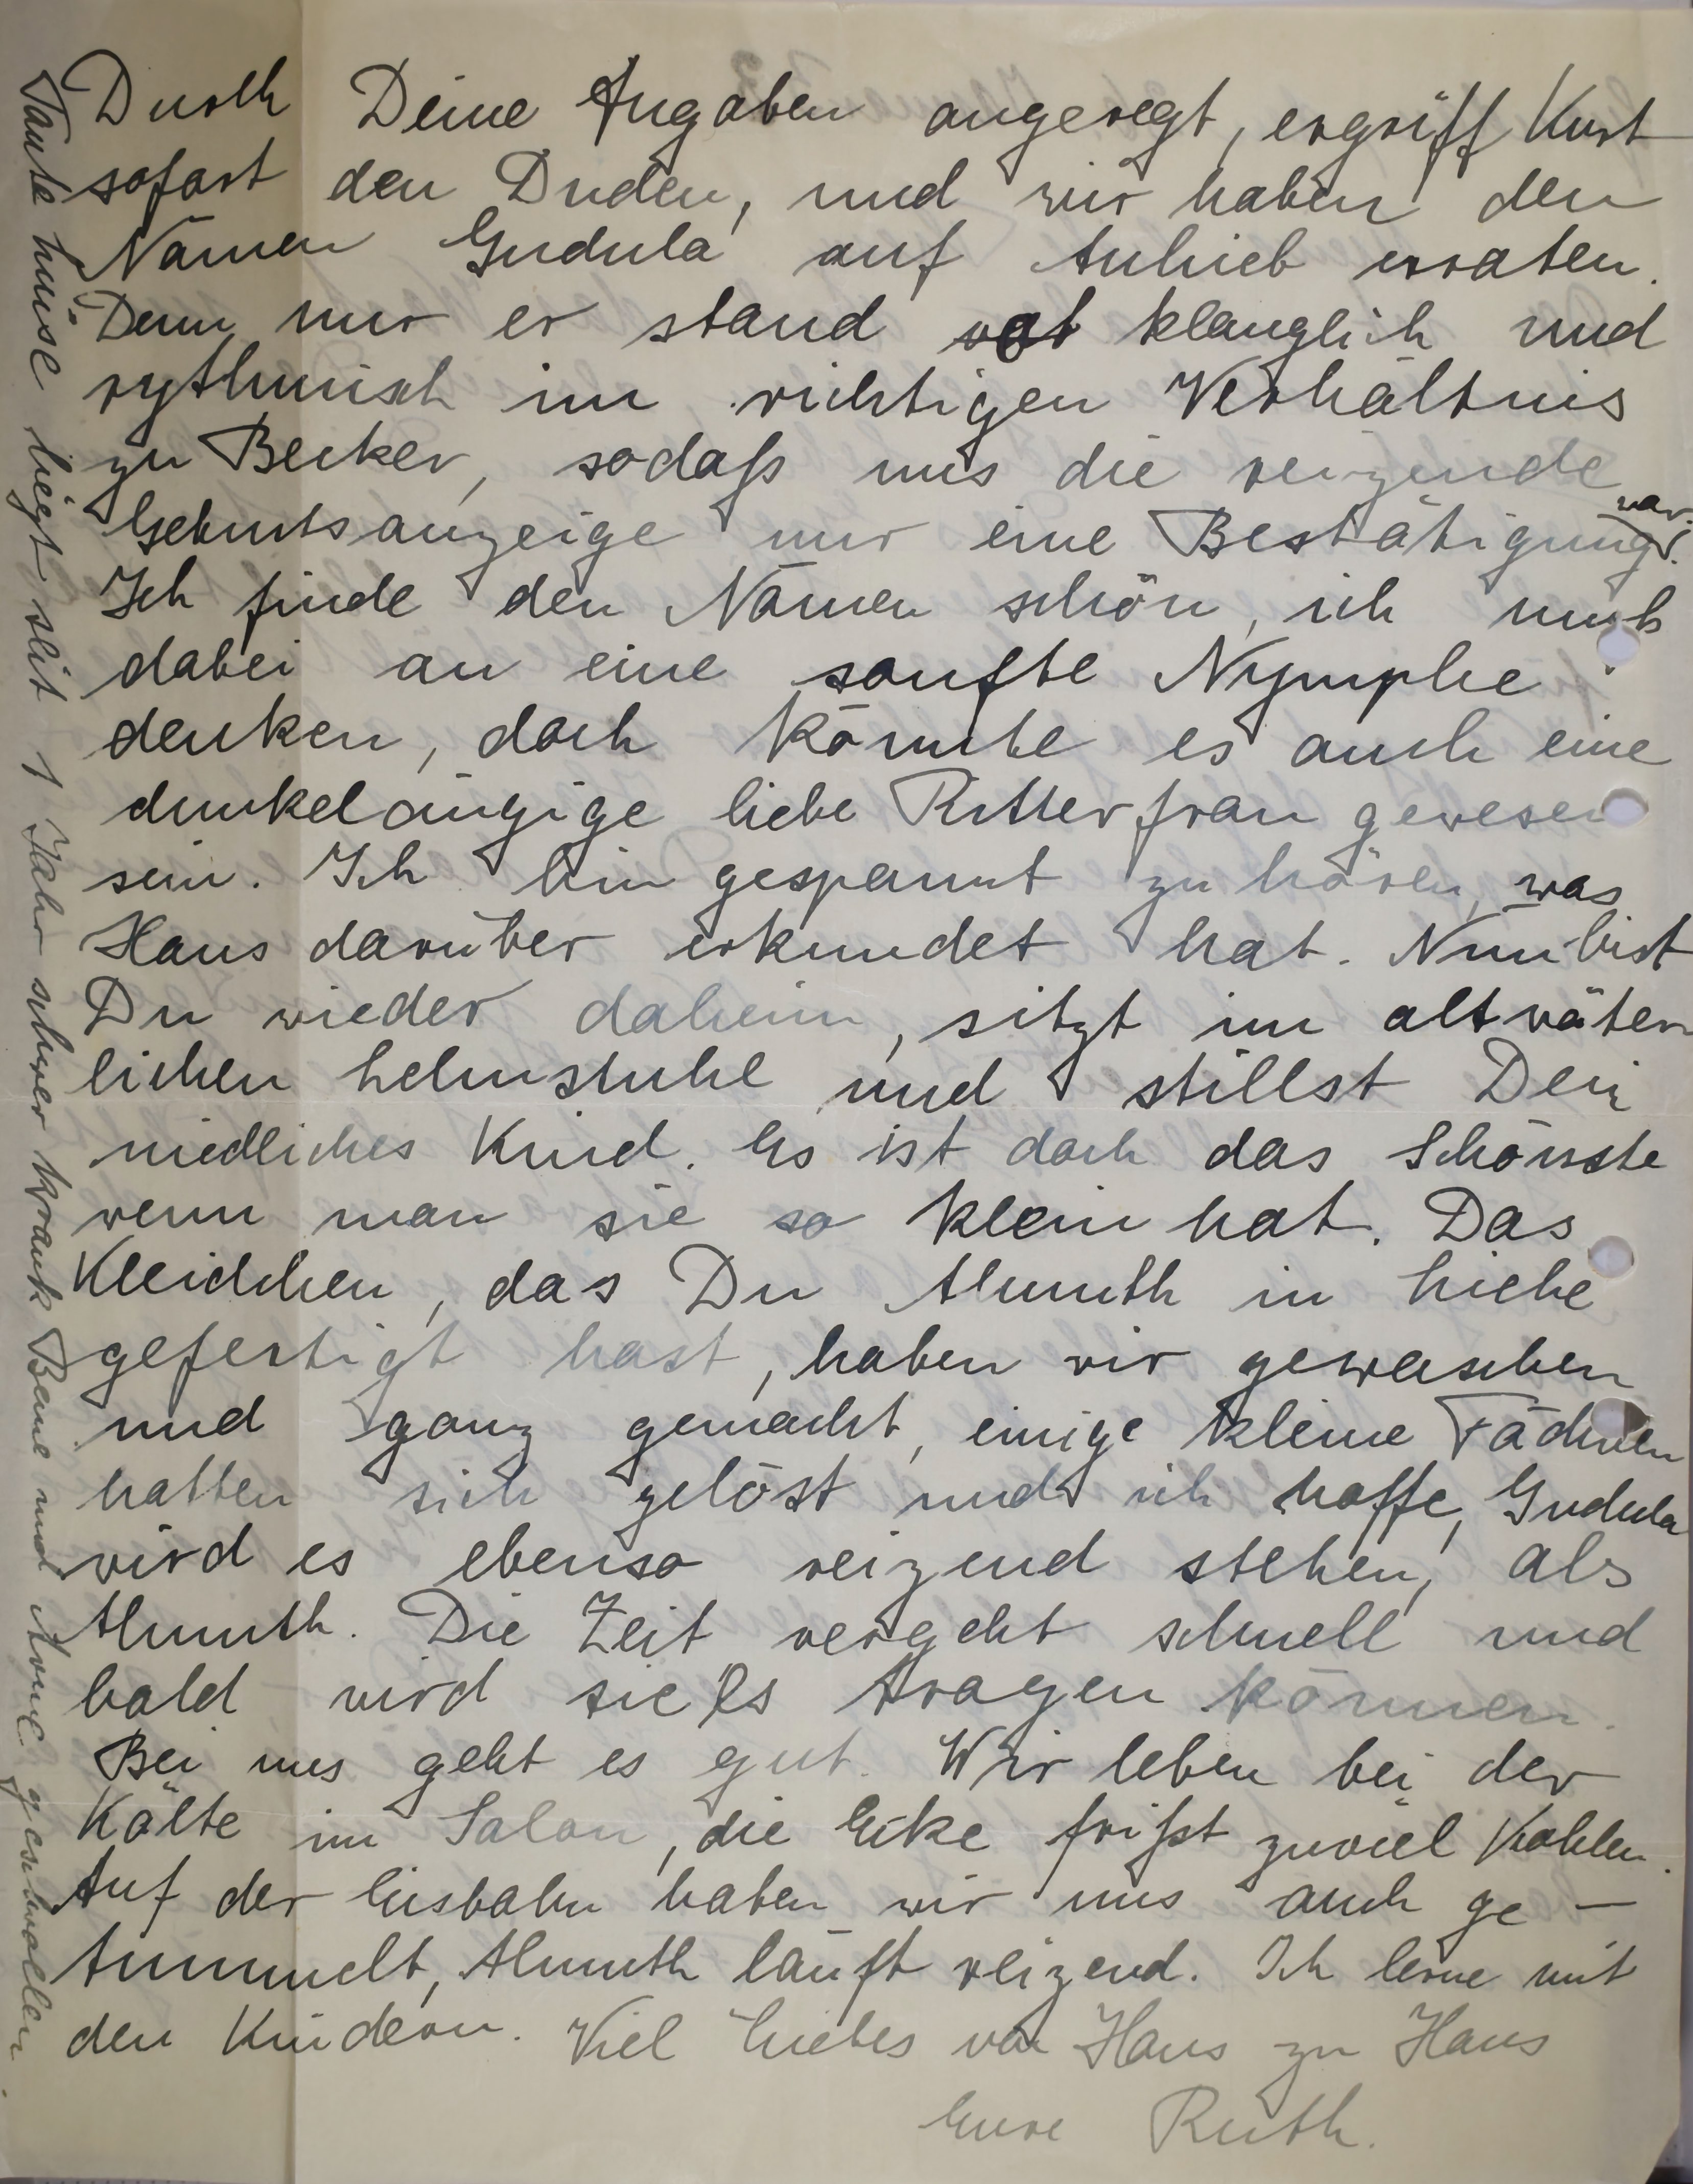 Durch Deine Angaben angeregt, ergriff Kurt
sofort den Duden, und wir haben den
Namen Gudula auf Anhieb erraten.
Denn nur er stand klanglich und
rythmisch im richtigen Verhältnis
zu Becker, sodaß uns die reizende
Geburtsanzeige nur eine Bestätigung war.
Ich finde den Namen schön, ich muß
dabei an eine sanfte Nymphe
denken, doch könnte es auch eine
dunkeläugige liebe Ritterfrau gewesen
sein. Ich bin gespannt zu hören, was
Hans darüber erkundet hat. Nun bist
Du wieder daheim, sitzt im altväter
lichen Lehnstuhl und stillst Dein
niedliches Kind. Es ist doch das Schönste
wenn man sie so klein hat. Das
Kleidchen, das Du Almuth in Liebe
gefertigt hast, haben wir gewaschen
und ganz gemacht, einige kleine Fädchen
hatten sich gelöst und ich hoffe, Gudula
wird es ebenso reizend stehen, als
Almuth. Die Zeit vergeht schnell und
bald wird sie es tragen können.
Bei uns geht es gut. Wir leben bei der
Kälte im Salon, die Ecke frißt zuviel Kohlen.
Auf der Eisbahn haben wir uns auch ge-
tummelt, Almuth läuft reizend. Ich lerne mit
den Kindern. Viel Liebes von Haus zu Haus
Eure Ruth.
Tante Luise liegt seit 1 Jahr schwer krank Beine und Arme geschwollen.